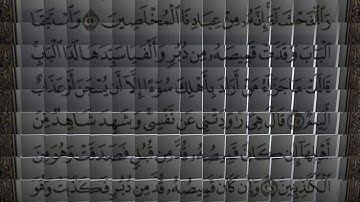 وَالْفَحْشَاءَ إِنَّهُ مِنْ عِبَادِنَا الْمُخْلَصِينَ ۝ وَاسْتَبَقَا
الْبَابَ وَقَدَّتْ قَمِيصَهُ مِن دُبُرٍ وَأَلْفَيَا سَيِّدَهَا لَدَا الْبَابِ
قَالَتْ مَا جَزَاءُ مَنْ أَرَادَ بِأَهْلِكَ سُوءًا إِلَّا أَن يُسْجَنَ أَوْ عَذَابٌ
أَلِيمٌ ۝ قَالَ هِيَ رَاوَدَتْنِي عَن نَّفْسِي وَشَهِدَ شَاهِدٌ مِّنْ
أَهْلِهَا إِن كَانَ قَمِيصُهُ قُدَّ مِن قُبُلٍ فَصَدَقَتْ وَهُوَ مِنَ
الْكَاذِبِينَ ۝ وَإِن كَانَ قَمِيصُهُ قُدَّ مِن دُبُرٍ فَكَذَبَتْ وَهُوَ